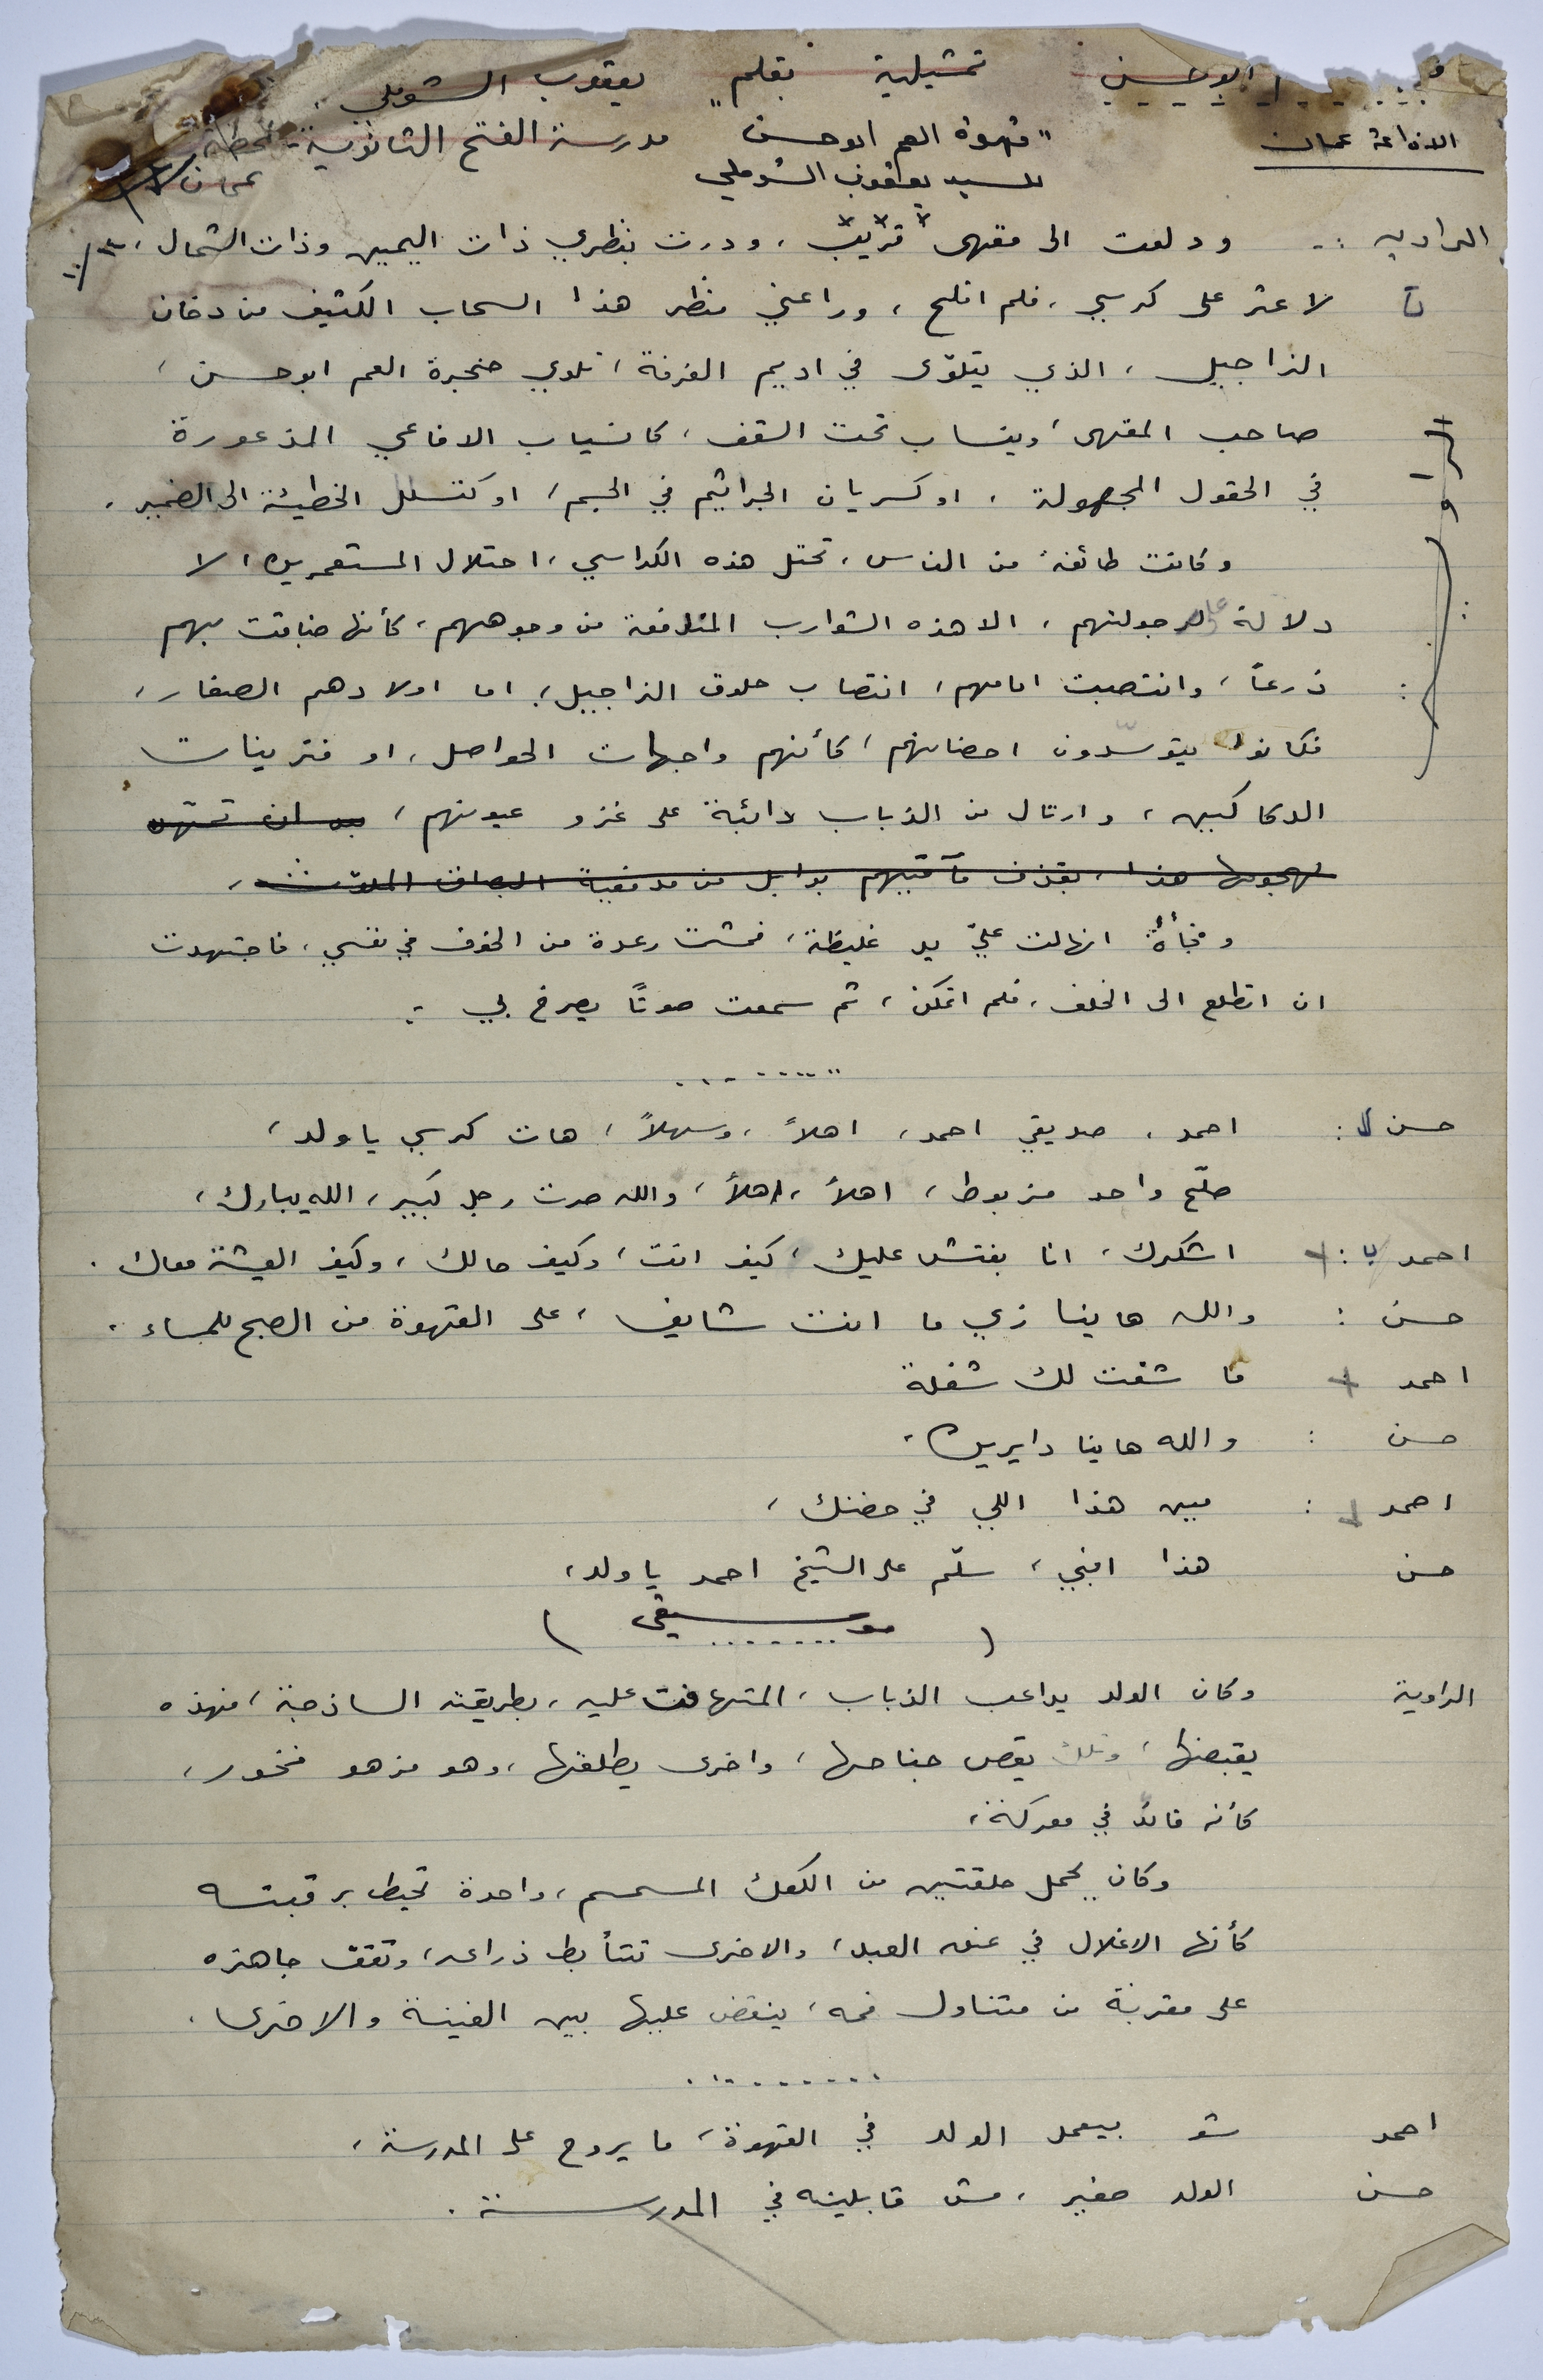 تمثيلية بقلم يعقوب الشوملي
الاذاعة عمان
"قهوة العم ابو حسن" مدرسة الفتح الثانوية - محطة
للسيد يعقوب الشوملي
عمان
الراويه :- ودلفت الى مقهى قريب ، ودرت بنظري ذات اليمين وذات الشمال ،
لاعثر على كرسي ، فلم افلح ، وراعني منظر هذا السحاب الكثيف من دخان
النراجيل ، الذي يتلوّى في اديم الغرفة ، تلوي حنجرة العم ابو حسن ،
صاحب المقهى ، وينساب تحت السقف ، كانسياب الافاعي المذعورة
في الحقول المجهولة ، او كسريان الجراثيم في الجسم ، او كتسلل الخطيئة الى الضمير .
وكانت طائفة من الناس ، تحتل هذه الكراسي ، احتلال المستعمرين ، لا
دلالة على رجولتهم ، الا هذه الشوارب المندفعة من وجوههم ، كأنها ضاقت بهم
ذرعاً ، وانتصبت امامهم ، انتصاب حلوق النراجيل ، اما اولادهم الصغار ،
فكانوا يتوسّدون احضانهم ، كأنهم واجهات الحواصل ، او فترينات
الدكاكين ، وارتال من الذباب دائبة على غزو عيونهم ،
لهجومها هذا ، بقذف مآقيهم بوابل من مدفعية البصاق الملوث ،
وفجأةً انهالت عليّ يد غليظة ، فمشت رعدة من الخوف في نفسي ، فاجتهدت
ان اتطلع الى الخلف ، فلم اتمكن ، ثم سمعت صوتًا يصرخ بي :
.........
حسن : احمد ، صديقي احمد ، اهلاً ، وسهلاً ، هات كرسي يا ولد ،
صلّح واحد مزبوط ، اهلاً ، اهلاً ، والله صرت رجل كبير ، الله يبارك ،
احمد : اشكرك ، انا بفتش عليك ، كيف انت ، وكيف حالك ، وكيف العيشة معاك .
حسن : والله هاينا زي ما انت شايف ، على القهوة من الصبح للمساء .
احمد ما شفت لك شغلة
حسن : والله هاينا دايرين .
احمد : مين هذا اللي في حضنك ،
حسن هذا ابني ، سلّم على الشيخ احمد يا ولد ،
( موسيقى )
........
الراوية وكان الولد يداعب الذباب ، المتهافت عليه ، بطريقته الساذجة ، فهذه
يقبضها ، وتلك يقص جناحها ، واخرى يطلقها ، وهو مزهو فخور ،
كأنه قائد في معركة ،
وكان يحمل حلقتين من الكعك المسمسم ، واحدة تحيط برقبته
كأنها الاغلال في عنق العبد ، والاخرى تتأبط ذراعه ، وتقف جاهزه
على مقربة من متناول فمه ، ينقض عليها بين الفينة والاخرى .
.........
احمد شو بيعمل الولد في القهوة ، ما يروح على المدرسة ،
حسن الولد صغير ، مش قابلينه في المدرسة .